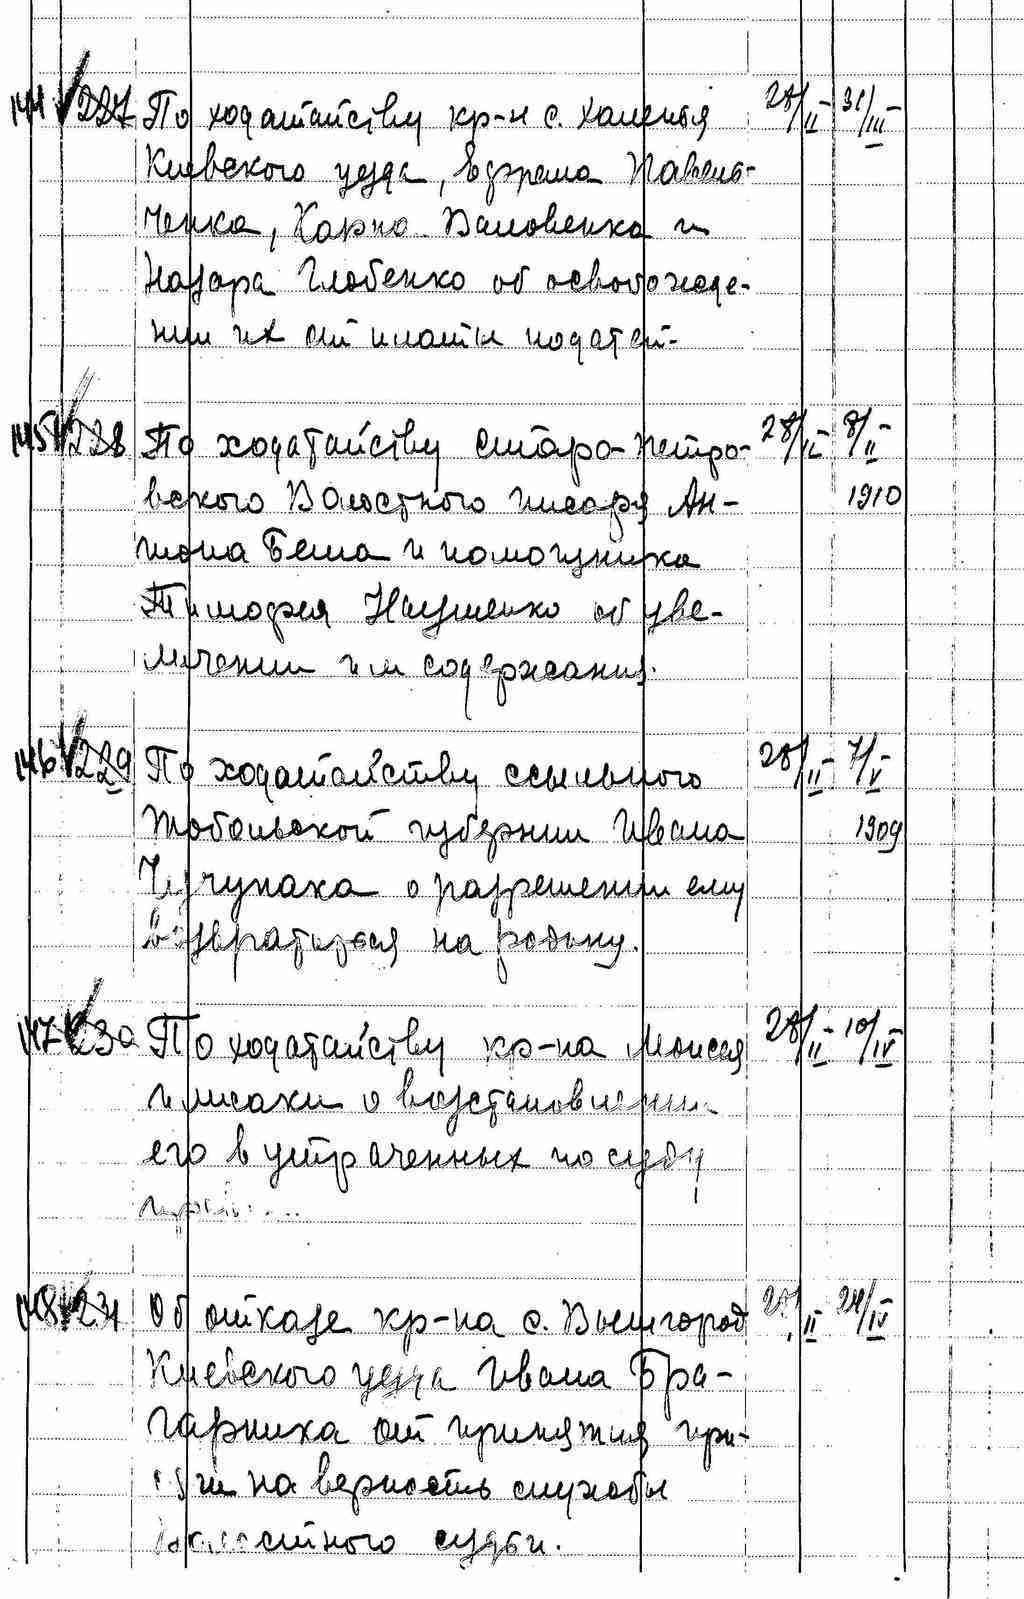 144 227 По ходатайству кр-н с. Халепья 28/II - 31/III -
Киевского уезда, Ефрема Павель-
ченка, КарпаВаловенка и
Назара Глобенко об освобожде-
нии их от платы податей-
145 228 По ходатайству Старо-Петро- 28/II - 8/II -
вского Волостного писаря Ан- 1910
тона Беша и помощника
Тимофея Наушенко об уве-
личении им содержания.
146 229 По ходатайству ссыльного 28/II - 7/V -
Тобольской губернии Ивана 1909
о разрешении ему
возвратиться на родину.
147 230 По ходатайству кр-на Моисея 28/II - 10/IV -
о возстановлении
его в утраченных по суду
148 231 Об отказе кр-на с. Вышгород 28/II 24/IV -
Киевского уезда Ивана Бра-
гарника от принятия при-
сяги на верность службы
волостного судьи.